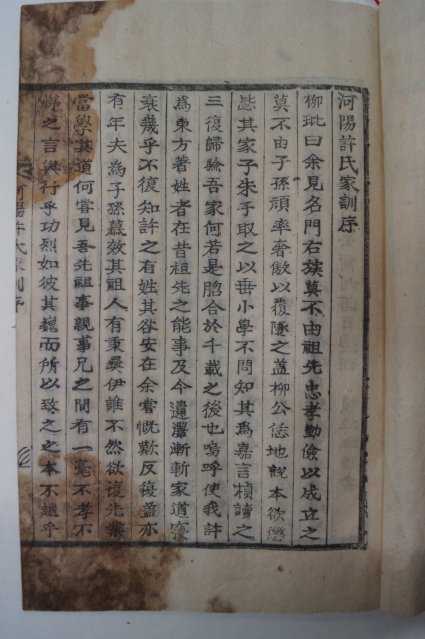 河陽許氏家訓序
柳玭曰余見名門右族莫不由祖先忠孝勤儉以成立之
莫不由子孫頑率奢傲以覆墜之蓋柳公恁地說本欲懲
毖其家子朱子取之以垂小學不問知其爲嘉言楨讀之
三復歸驗吾家何若是脗合於千載之後也嗚呼使我許
爲東方著姓者在昔祖先之能事及今遺澤漸斬家道寖
衰幾乎不復知許之有姓其咎安在余嘗慨歎反復蓋亦
有年夫爲子孫慕效其祖人有秉彛伊誰不然欲復先業
當學其道何嘗見吾先祖事親事兄之間有一毫不孝不
悌之言與行乎功烈如彼其巍而所以致之之本不越乎
河陽許氏家訓序